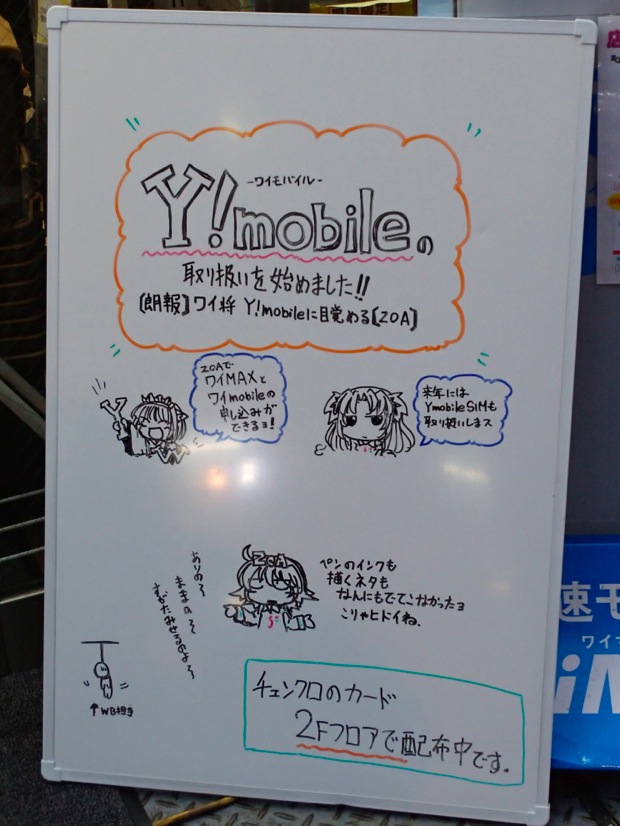 -ワイモバイル-
Y!mobileの
取り扱いを始めました!!
〔朗報〕ワイ将 Y!mobileに目覚める〔ZOA〕
ZOAで
ワイMAXと
ワイmobileの
申し込みが
できるョ!
来年には
YmobileSIMも
取り扱いしまス
ZOA
ペンのインクも
描くネタも
なんにもでてこなかったョ
こりゃヒドイね.
ありの〜
ままの〜
すがたみせるのよ〜
↑WB担当
チェンクロのカード
2Fフロアで配布中です.
速モ
ワイ